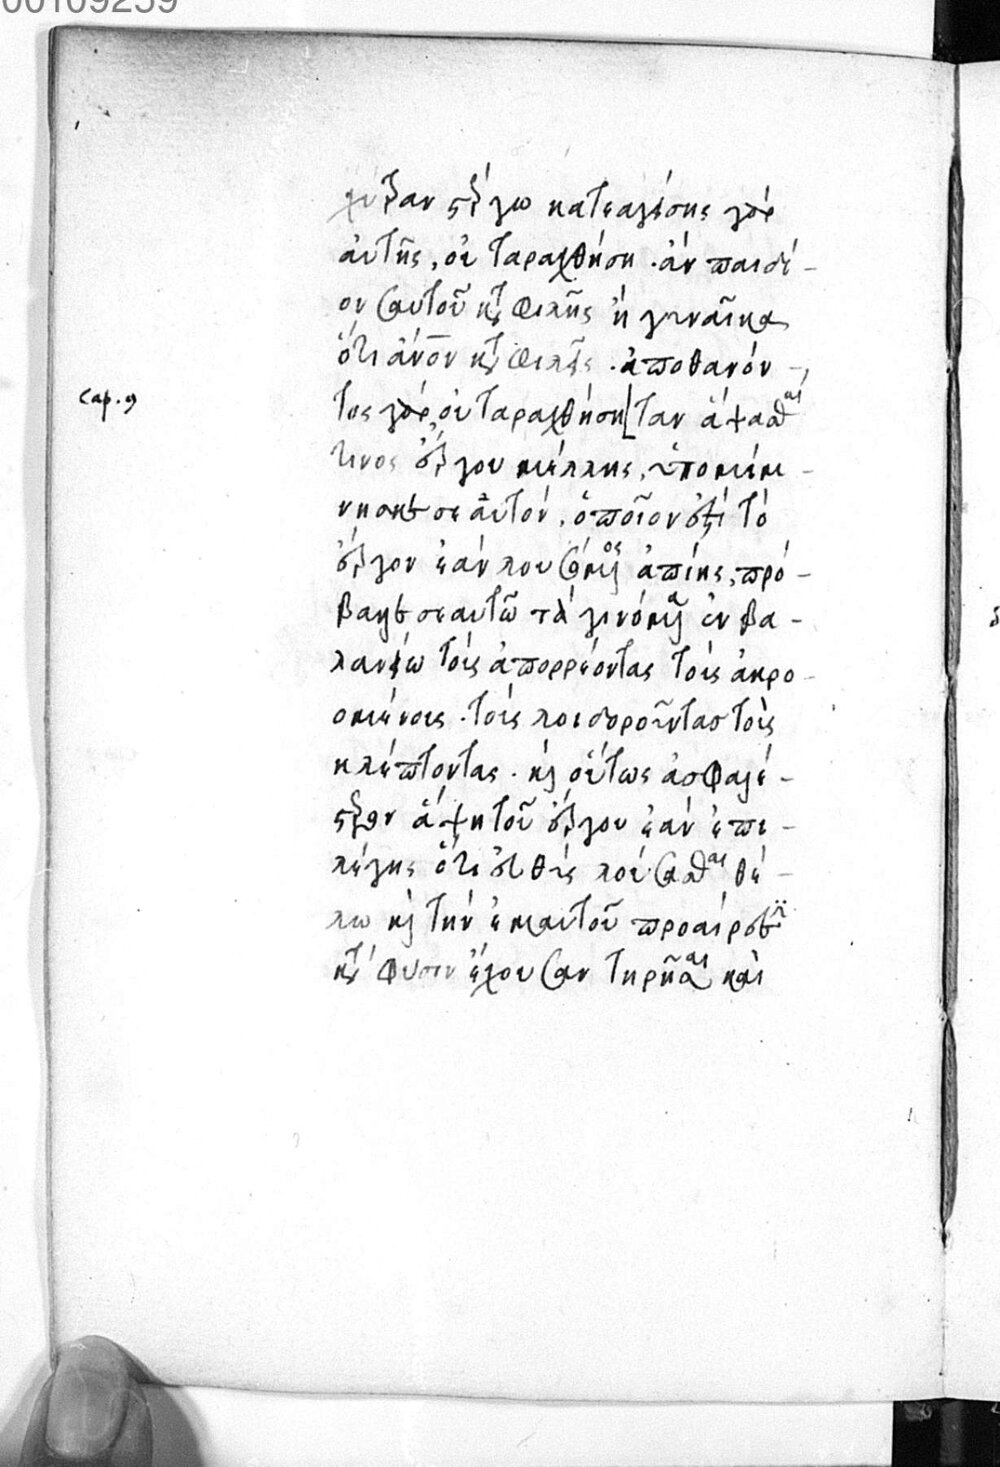 00109259
χύτραν στέργω κατεαγείσης γὰρ
αὐτῆς, οὐ ταραχθήση. ἂν παιδί-
ον σαυτοῦ καταφιλῆς ἢ γυναῖκα
ὅτι ἄνον καταφιλεῖς. ἀποθανόν-
Cap. 9
τος γὰρ, οὐ ταραχθήση[ταν ἅψασθαι
τινος ἔργου μέλλης, ὑπομίμ-
νησκε σεαυτὸν, ὁποῖον ἐστὶ τὸ
ἔργον ἐὰν λουσόμενος ἀπίης, πρό-
βαλλε σεαυτῶ τὰ γινόμενα ἐν βα-
λανείω τοὺς ἀπορρέοντας τοὺς ἀκρο-
ομένους. τοὺς λοιδοροῦντας τοὺς
κλέπτοντας. καὶ οὕτως ἀσφαλέ-
στερον ἅψη τοῦ ἔργου ἐὰν ἐπι-
λέγης ὅτι εὐθὺς λούσασθαι θέ-
λω καὶ τὴν ἐμαυτοῦ προαίρεσιν
κατὰ φύσιν ἔχουσαν τηρῆσαι καὶ